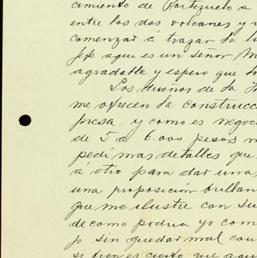 cimiento de Portezuelo a
entre los dos volcanes y
comenzar á trazar la
Jefe aqui es un señor
agradable y espero que
Los dueños de la
me ofrecen la construcc
presa y como es negoci
de 5 á 6.000 pesos
pedí mas detalles que
á otro para dar una
una proposición brillan
que me ilustre con su
de como podria yo com
jo sin quedar mal con
si bien es cierto que aqui